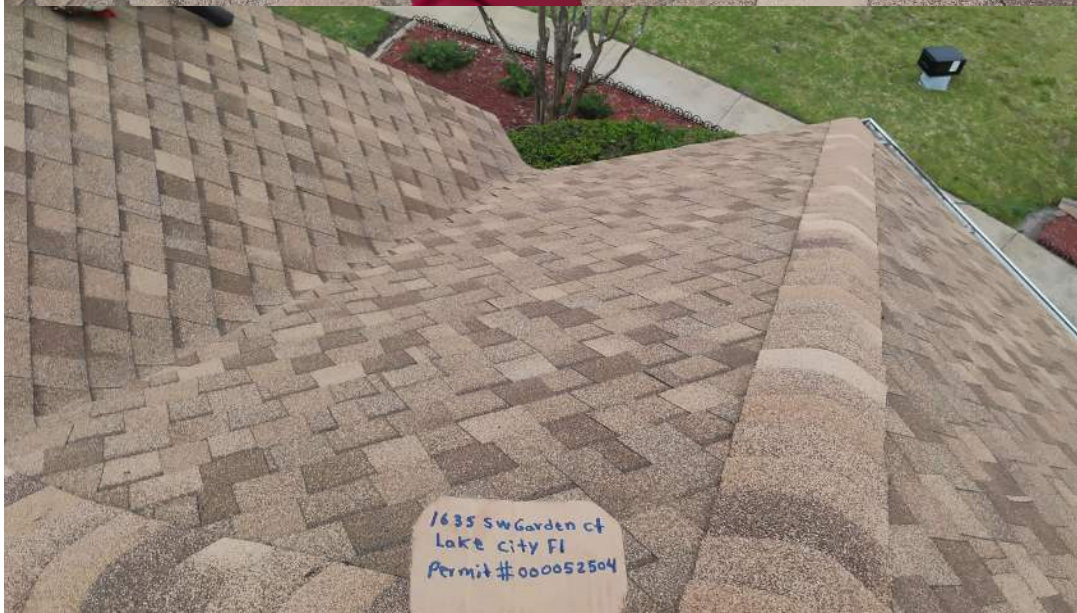 1635 SW Garden ct
Lake city Fl
Permit # 000052504